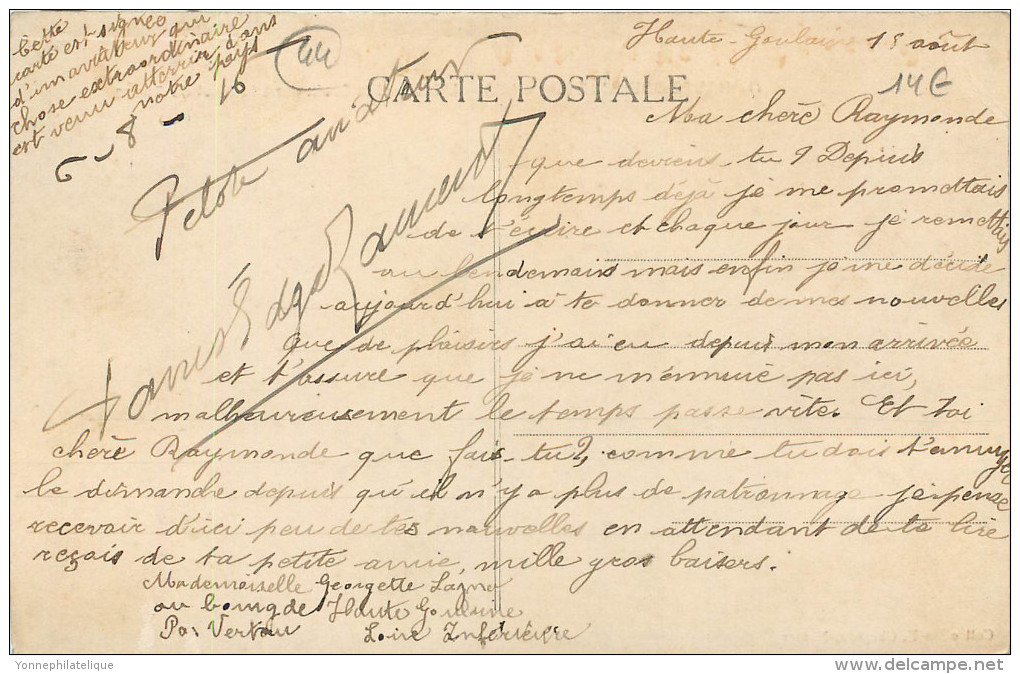 Cette
carte est signée
d'un aviateur qui
chose extraordinaire
est venu atterrir dans
notre pays
6 - 8 - 16
44
CARTE POSTALE
14€
Haute-Goulaine 15 août
Ma chère Raymonde
que deviens tu ? Depuis
longtemps déjà je me promettais
de t'écrire et chaque jour je remettais
au lendemain mais enfin je me décide
aujourd'hui à te donner de mes nouvelles
que de plaisirs j'ai eu depuis mon arrivée
et t'assure que je ne m'ennuie pas ici,
malheureusement le temps passe vite. Et toi
chère Raymonde que fais-tu ?, comme tu dois t'ennuyer
le dimanche depuis qu'il n'y a plus de patronnage je pense
recevoir d'ici peu de tes nouvelles en attendant de te lire
reçois de ta petite amie, mille gros baisers.
Mademoiselle Georgette
au bourg de Haute Goulaine
Par Vertou
Loire Inférieure
Pilote aviateur
Yonnephilatelique
www.delcampe.net